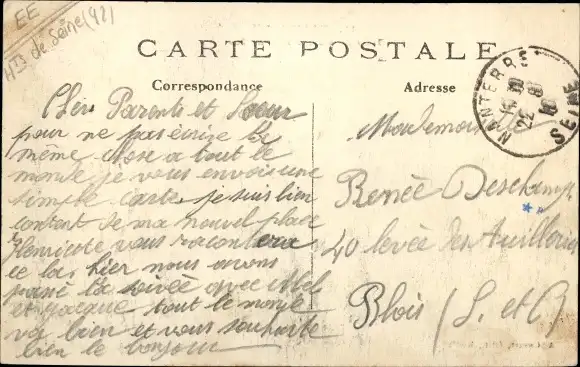 EE
Hts de Seine (92)
CARTE POSTALE
Correspondance
Adresse
NANTERRE
SEINE
Chers Parents et Soeur
pour ne pas écrire la
même chose a tout le
monde je vous envois une
simple carte je suis bien
content de ma nouvel place
vous racontera
hier nous avons
passé la soirée avec
et tout le monde
va bien et vous souhaite
bien le bonjour
Mademoiselle
Renée Deschamps
40 levée des Tuilleries
Blois (L. et C)